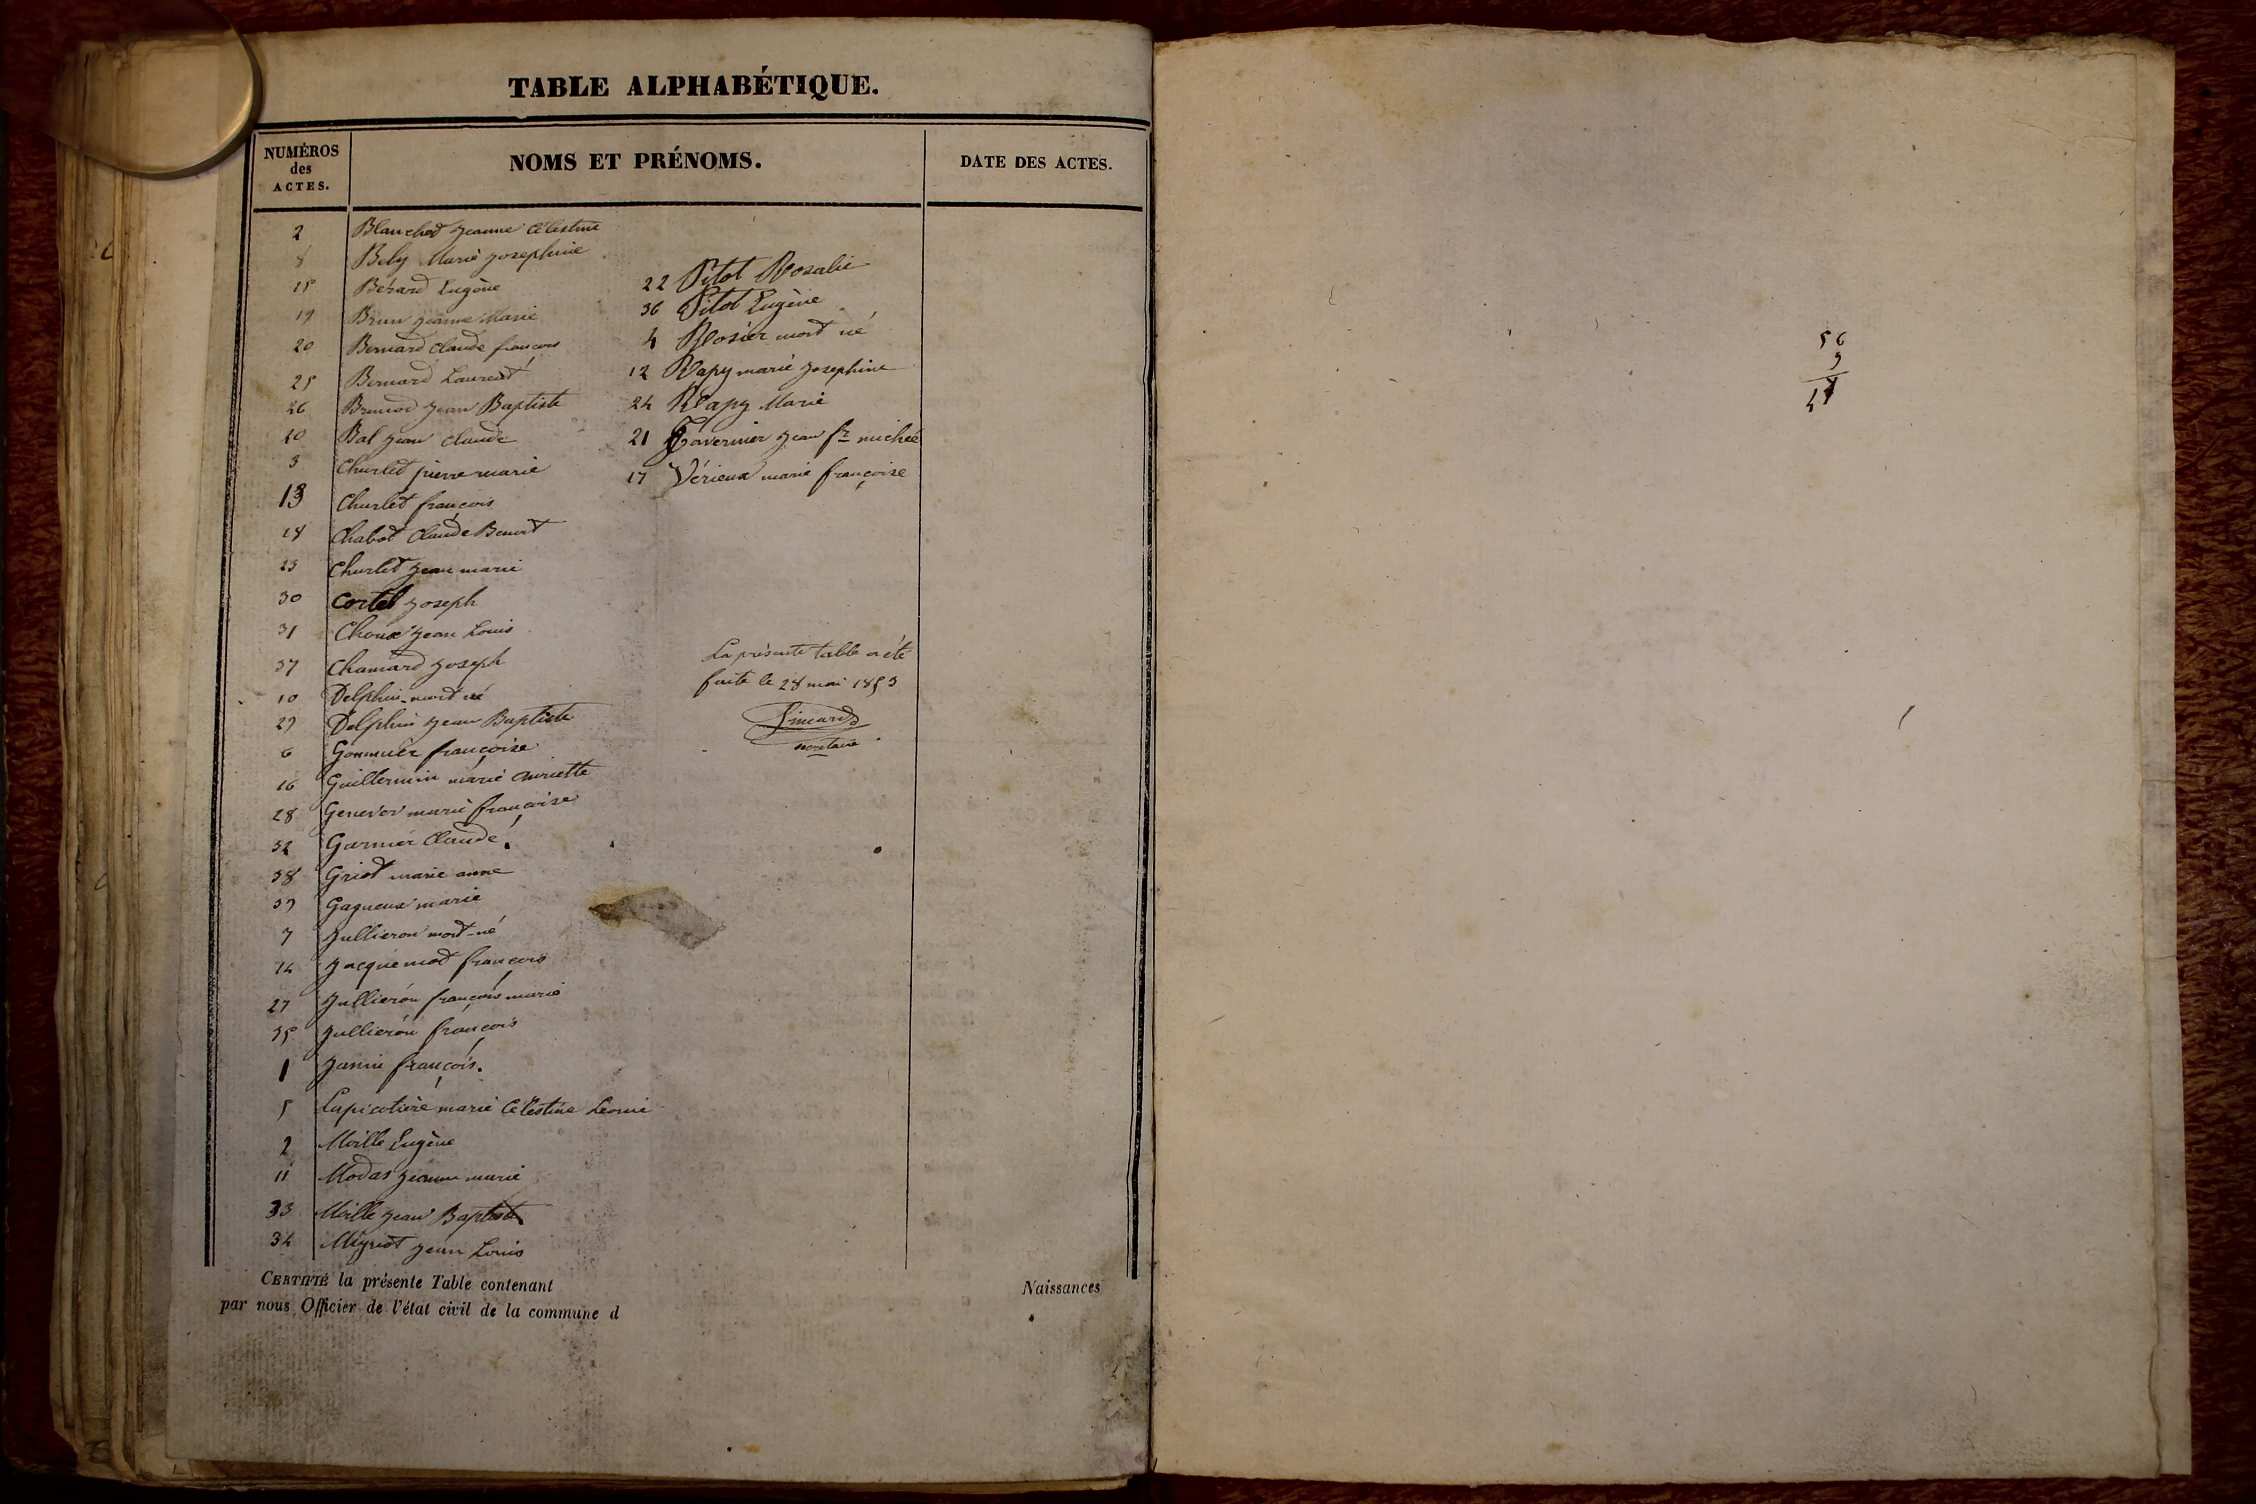 TABLE ALPHABÉTIQUE.
NUMÉROS
des
ACTES.
NOMS ET PRÉNOMS.
DATE DES ACTES.
2 Blanchet Jeanne Célestine
8 Bely Marie Josephine
15 Bérard Eugène
19 Brun Jeanne Marie
20 Bernard Claude françois
25 Bernard Laurent
26 Jean Baptiste
Bal Jean Claude
3 Churlet pierre marie
13 Churlet françois
18 Chabot Claude Benoit
23 Churlet Jean marie
30 Cortel Joseph
31 Choux Jean Louis
37 Chanard Joseph
10 Delphin mort né
29 Delphin Jean Baptiste
6 Gommier françoise
16 Guillermin marie
28 marie françoise
32 Garnier Claude
38 Griot marie anne
39 Gagneux marie
7 Jullieron mort-né
14 Jacquemod françois
27 Jullieron françois marie
35 Jullieron françois
1 Janin françois.
5 Lapicotière marie Célestine Leonie
2 Mille Eugène
11 Modas Jeanne marie
33 Mille Jean Baptiste
34 Jean Louis
22 Pitot Rosalie
36 Pitot Eugène
4 Rosier mort né
12 Rapy marie Josephine
24 Rapy Marie
21 Tavernier Jean fr. michel
17 Vérieux marie françoise
La présente table a été
faite le 28 mai 1853
CERTIFIÉ la présente Table contenant
Naissances
par nous Officier de l'état civil de la commune d
56
9
47